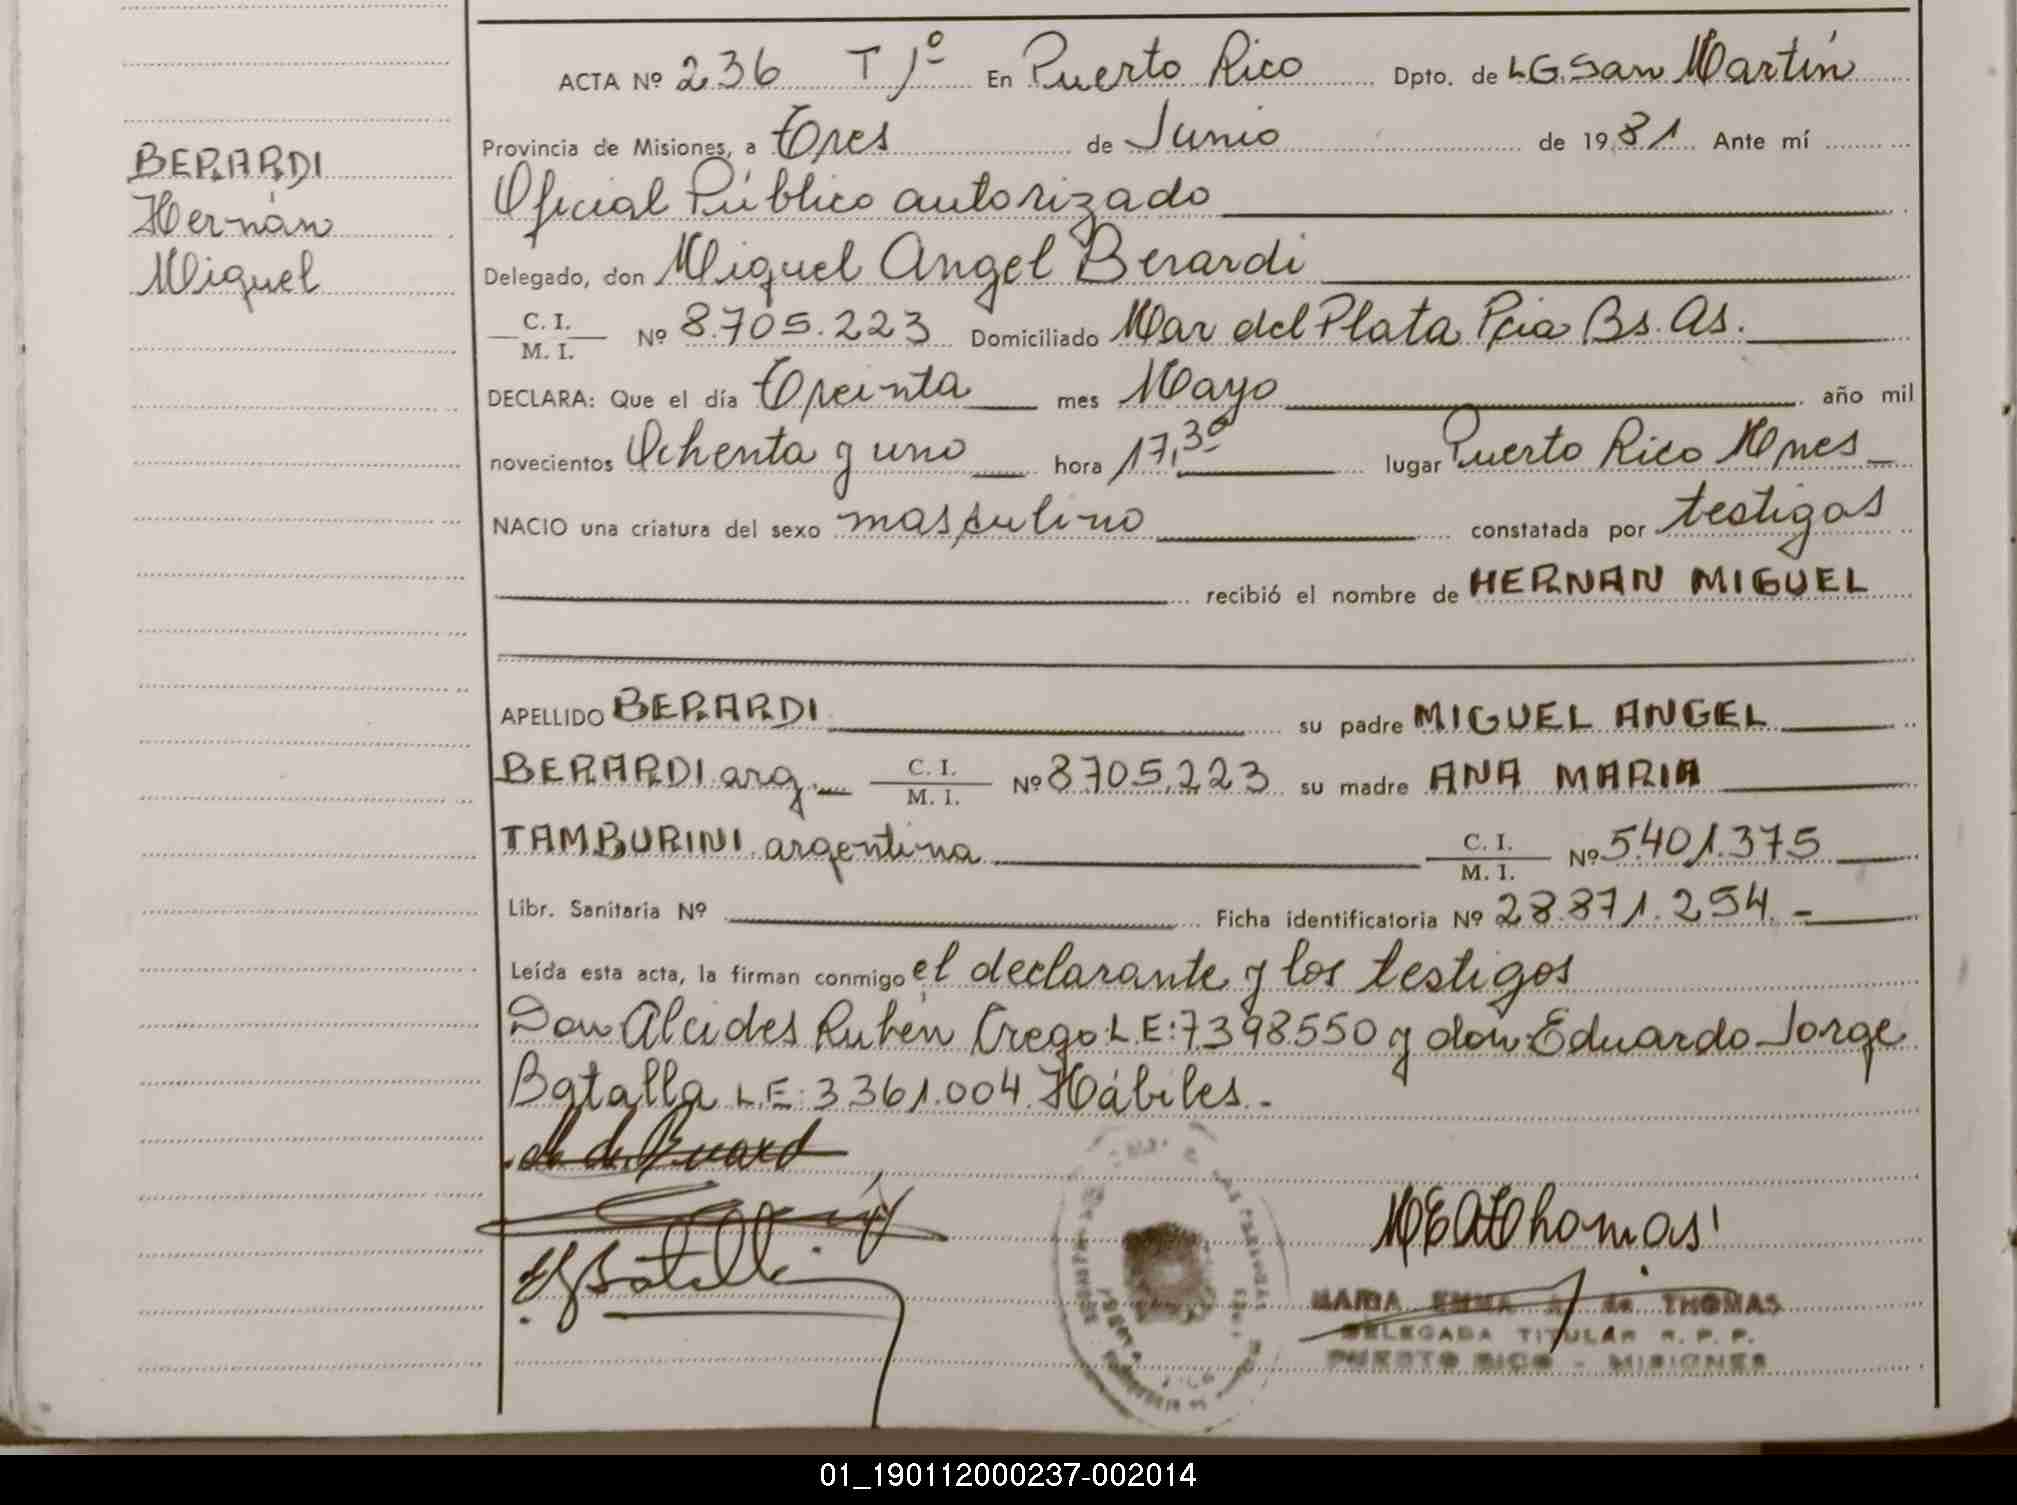 ACTA Nº 236 T 1º En Puerto Rico Dpto. de L.G. San Martín
Provincia de Misiones, a Tres de Junio de 1981 Ante mí
Oficial Público autorizado
Delegado, don Miguel Angel Berardi
C. I.
M. I. Nº 8.705.223 Domiciliado Mar del Plata Pcia Bs. As.
DECLARA: Que el día Treinta mes Mayo año mil
novecientos Ochenta y uno hora 17,30 lugar Puerto Rico Mnes
NACIO una criatura del sexo masculino constatada por testigos
recibió el nombre de HERNAN MIGUEL
APELLIDO BERARDI su padre MIGUEL ANGEL
BERARDI arg. C. I.
M. I. Nº 8705.223 su madre ANA MARIA
TAMBURINI argentina C. I.
M. I. Nº 5.401.375
Libr. Sanitaria Nº Ficha identificatoria Nº 28.871.254.-
Leída esta acta, la firman conmigo el declarante y los testigos
Don Alcides Ruben Crego L.E: 7.398.550 y don Eduardo Jorge
Batalla L.E: 3361.004. Hábiles.-
BERARDI
Hernán
Miguel
MEAThomas
MARIA EMMA A. de THOMAS
DELEGADA TITULAR R. P. P.
PUERTO RICO - MISIONES
01_190112000237-002014